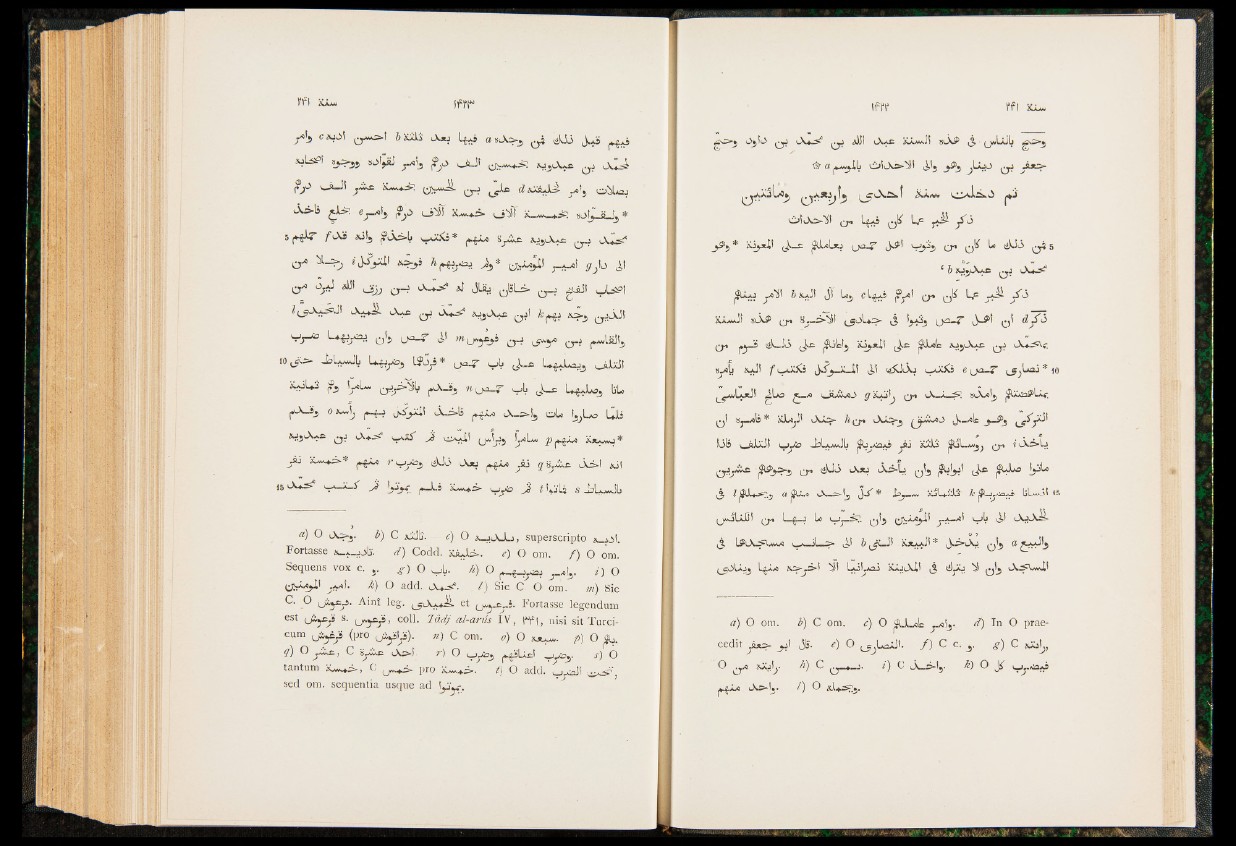 ١٤٢٢ سنة ٢٤١
وحجّ بالناس فى هذه السنة عبد الله بن محمّد بن داود وحجّ
جعفر بن دينار وهو والى الاحداث بالموسم a ☆
ثم دخلت سنة احدى واربعين ومائتين
ذكر الخبر عما كان فيها من الاحداث
5 فمن ذلك ما كان من وثوب اهل حمص بعاملهم على المعونة *وهو
محمّد بن عبدويه b ،
ذكر الخبر عما كان من امرهم فيها c وما آل اليه b الامر بينهم
ذُكر d ان اهل حمص وثبوا فى جمادى الآخرة من هذه السنة
بمحمّد بن عبدويه عاملهم على المعونة واعانهم على ذلك قوم من
10 *نصارى حمص e فكتب بذلك الى المتوكّل فكتب f اليه يأمره
بمناهضتهم وامدّه بجند من راتبة g دمشق مع صالح العبّاسىّ
التركىّ وهو عامل دمشق وجند من h جند الرملة *فامره ان
يأخذ i من رؤسائهم ثلثة نفر فيضربهم بالسياط ضرب التلف فاذا
ماتوا صلبهم على ابوابهم وان يأخذ بعد ذلك من وجوههم عشرين
15 انسانا فيضربهم k ثلثمائة سوط *كلّ واحد منهم a ويحملهم l فى
الحديد الى باب امير المؤمنين وان يخرّب ما بها من الكنائس
والبيع a وان يُدْخل *البيعة التى b الى جانب مسجدها فى
المسجد وان لا يترك فى المدينة نصرانيّا الّا اخرجه منها وينادى
a) O om. b) C om. c) O وامر عاملهم. d) In O prae-
cedit قال ابو جعفر. e) O النصارى. f) C c. و. g) C راتبه,
O رابته من. h) C . i) C واخذ. k) O فيضرب كل
واحد منهم. l) O ويحمله.
سنة ٢٤١ ١٤٢٣
فيهم قبل ذلك فمن وجده a فيها بعد ثلثة b احسن ادبه c وامر
لمحمّد بن عبدويه بخمسين الف درهم وامر لقوّاده ووجوه اصحابه
بصلات وامر لخليفته d علىّ بن الحسين بخمسة عشر الف درهم
*ولقوّاده بخمسة آلاف خمسة آلاف درهم وامر e بخلع فاخذ
5 محمّد بن عبدويه عشرة منهم *فكتب باخذهم وانه قد f حملهم
الى دار g امير المؤمنين *ولم يضربهم h فوجّه المتوكّل i رجلا من
اصحاب الفتح بن خاقان يقال له محمّد بن رزق الله ليردّ من
الذين وجّه بهم k ابن عبدويه محمّد بن عبد الحميد الحيدىّ l
والقاسم بن موسى بن فوعوس m الى حمص وان يضربهما ضرب
10 التلف ويصلبهما على باب حمص *فردّها وضربهما بالسياط حتى
ماتا وصلبهما على باب حمص n وقدم بالآخرين سامرّا وهم ثمانية
فلمّا صاروا مات واحد منهم فاخذ المتوكّل بهم رأسه o وقدم
*بسبعة منهم p سامرّا وبرأس الميّت ثم كتب محمّد بن عبدويه
انه اخذ عشرة q نفر منهم بعد ذلك وضرب r منهم *خمسة نفر
15 بالسياط s فماتوا t ثم ضرب خمسة فلم يموتوا ثم كتب محمّد
a) O وُجِد. b) C ثالثة. c) O , superscripto ادبه.
Fortasse . d) Codd. خليفة. e) O om. f) O om.
Sequens vox c. و. g) O باب. h) O وامر بضربهم. i) O
امير المؤمنين. k) O add. محمد. l) Sic C O om. m) Sic
C. O . Ainî leg. الحميدى et . Fortasse legendum
est s. , coll. Tâdj al-arûs IV, ٣٣١, nisi sit Turci-
cum (pro ). n) C om. o) O سبعة. p) O بهم.
q) O عشر, C احد عشرة r) O وضرب اعناقهم وضرب. s) O
tantum خمسة, C خمس pro خمسة. t) O add. تحت الضرب,
sed om. sequentia usque ad يموتوا.